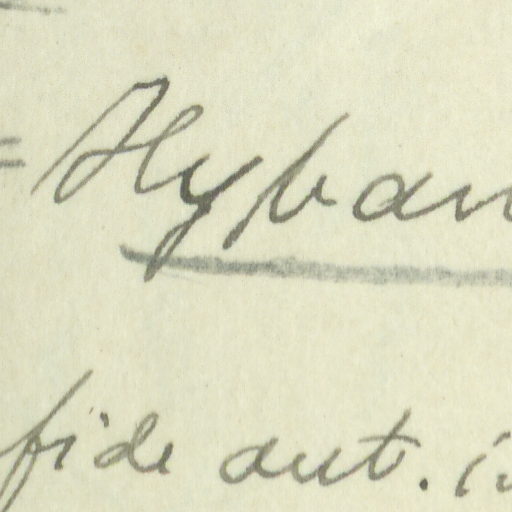 = Hyban
fide aut. i